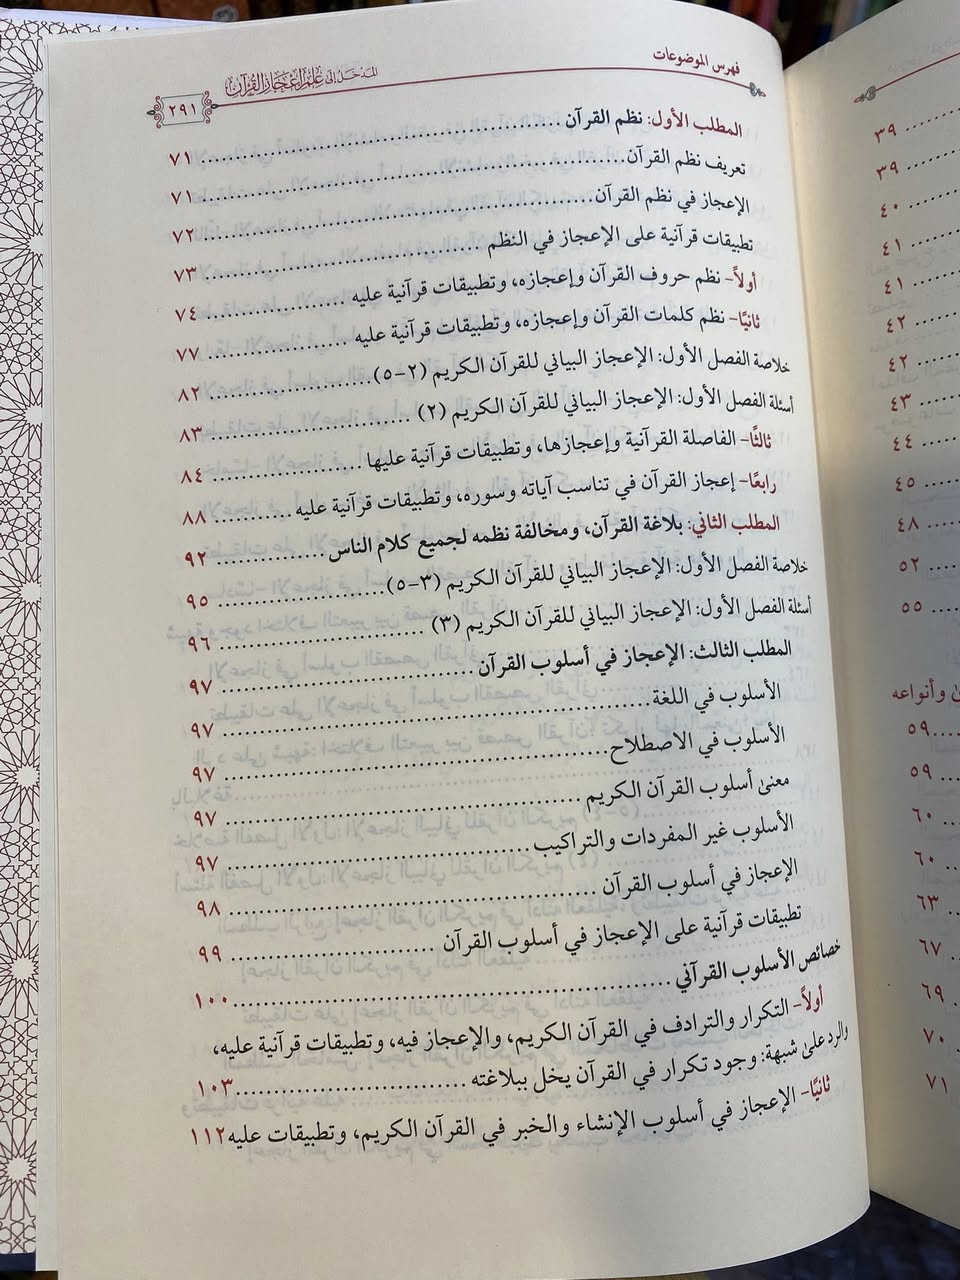 فهرس الموضوعات
المدخل إلى علم إعجاز القرآن
٢٩١
المطلب الأول: نظم القرآن ........ ٧١
تعريف نظم القرآن ........ ٧١
الإعجاز في نظم القرآن ........ ٧٢
تطبيقات قرآنية على الإعجاز في النظم ........ ٧٣
أولاً- نظم حروف القرآن وإعجازه، وتطبيقات قرآنية عليه ........ ٧٤
ثانيًا- نظم كلمات القرآن وإعجازه، وتطبيقات قرآنية عليه ........ ٧٧
خلاصة الفصل الأول: الإعجاز البياني للقرآن الكريم (٢-٥) ........ ٨٢
أسئلة الفصل الأول: الإعجاز البياني للقرآن الكريم (٢) ........ ٨٣
ثالثًا- الفاصلة القرآنية وإعجازها، وتطبيقات قرآنية عليها ........ ٨٤
رابعًا- إعجاز القرآن في تناسب آياته وسوره، وتطبيقات قرآنية عليه ........ ٨٨
المطلب الثاني: بلاغة القرآن، ومخالفة نظمه لجميع كلام الناس ........ ٩٢
خلاصة الفصل الأول: الإعجاز البياني للقرآن الكريم (٣-٥) ........ ٩٥
أسئلة الفصل الأول: الإعجاز البياني للقرآن الكريم (٣) ........ ٩٦
المطلب الثالث: الإعجاز في أسلوب القرآن ........ ٩٧
الأسلوب في اللغة ........ ٩٧
الأسلوب في الاصطلاح ........ ٩٧
معنىٰ أسلوب القرآن الكريم ........ ٩٧
الأسلوب غير المفردات والتراكيب ........ ٩٧
الإعجاز في أسلوب القرآن ........ ٩٨
تطبيقات قرآنية على الإعجاز في أسلوب القرآن ........ ٩٩
خصائص الأسلوب القرآني ........ ١٠٠
أولاً- التكرار والترادف في القرآن الكريم، والإعجاز فيه، وتطبيقات قرآنية عليه،
والرد علىٰ شبهة: وجود تكرار في القرآن يخل ببلاغته ........ ١٠٣
ثانيًا- الإعجاز في أسلوب الإنشاء والخبر في القرآن الكريم، وتطبيقات عليه ١١٢
٣٩
٣٩
٤٠
٤١
٤١
٤٢
٤٢
٤٣
٤٤
٤٥
٤٨
٥٢
٥٥
وأنواعه
٥٩
٥٩
٦٠
٦٠
٦٣
٦٧
٦٩
٧٠
٧١